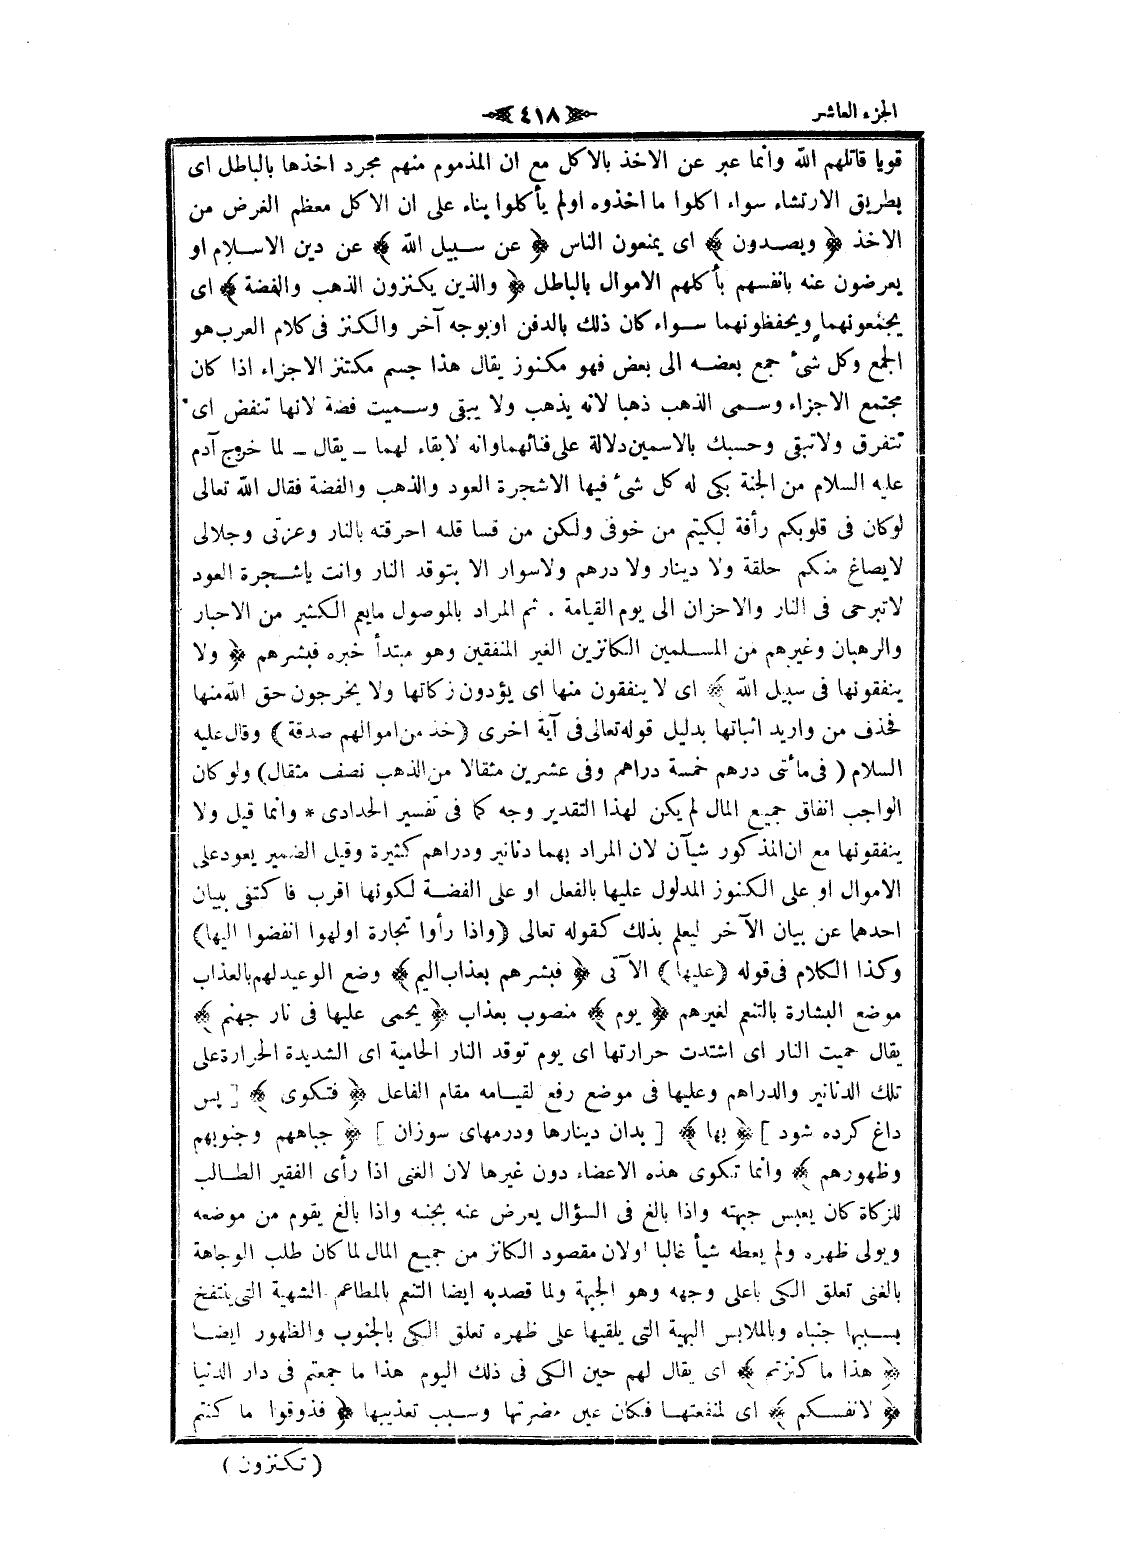 الجزء العاشر
٤١٨
قويا قاتلهم الله وانما عبر عن الاخذ بالاكل مع ان المذموم منهم مجرد اخذها بالباطل اى
بطريق الارتشاء سواء اكلوا ما اخذوه اولم يأكلوا بناء على ان الاكل معظم الغرض من
الاخذ ﴿ ويصدون ﴾ اى يمنعون الناس ﴿ عن سبيل الله ﴾ عن دين الاسلام او
يعرضون عنه بانفسهم بأكلهم الاموال بالباطل ﴿ والذين يكنزون الذهب والفضة ﴾ اى
يجتمعونهما ويحفظونهما سواء كان ذلك بالدفن اوبوجه آخر والكنز فى كلام العرب هو
الجمع وكل شىء جمع بعضه الى بعض فهو مكنوز يقال هذا جسم مكتنز الاجزاء اذا كان
مجتمع الاجزاء وسمى الذهب ذهبا لانه يذهب ولا يبقى وسميت فضة لانها تنفض اى
تتفرق ولاتبقى وحسبك بالاسمين دلالة على فنائهما وانه لابقاء لهما ـ يقال ـ لما خروج آدم
عليه السلام من الجنة بكى له كل شىء فيها الاشجرة العود والذهب والفضة فقال الله تعالى
لوكان فى قلوبكم رأفة لبكيتم من خوفى ولكن من قسا قلبه احرقته بالنار وعزتى وجلالى
لايصاغ منكم حلقة ولا دينار ولا درهم ولاسوار الا بتوقد النار وانت ياشجرة العود
لاتبرحى فى النار والاحزان الى يوم القيامة . ثم المراد بالموصول مايعم الكثير من الاحبار
والرهبان وغيرهم من المسلمين الكانزين الغير المنفقين وهو مبتدأ خبره فبشرهم ﴿ ولا
ينفقونها فى سبيل الله ﴾ اى لا ينفقون منها اى يؤدون زكاتها ولا يخرجون حق الله منها
فحذف من واريد اثباتها بدليل قوله تعالى فى آية اخرى (خذ من اموالهم صدقة) وقال عليه
السلام ( فى مأتى درهم خمسة دراهم وفى عشرين مثقالا من الذهب نصف مثقال) ولو كان
الواجب انفاق جميع المال لم يكن لهذا التقدير وجه كما فى تفسير الحدادى * وانما قيل ولا
ينفقونها مع ان المذكور شيآن لان المراد بهما دنانير ودراهم كثيرة وقيل الضمير يعود على
الاموال او على الكنوز المدلول عليها بالفعل او على الفضة لكونها اقرب فاكتفى ببيان
احدهما عن بيان الآخر ليعلم بذلك كقوله تعالى (واذا رأوا تجارة اولهوا انفضوا اليها)
وكذا الكلام فى قوله (عليها) الآتى ﴿ فبشرهم بعذاب اليم ﴾ وضع الوعيد لهم بالعذاب
موضع البشارة بالتنعم لغيرهم ﴿ يوم ﴾ منصوب بعذاب ﴿ يحمى عليها فى نار جهنم ﴾
يقال حميت النار اى اشتدت حرارتها اى يوم توقد النار الحامية اى الشديدة الحرارة على
تلك الدنانير والدراهم وعليها فى موضع رفع لقيامه مقام الفاعل ﴿ فتكوى ﴾ [ پس
داغ كرده شود ] ﴿ بها ﴾ [ بدان دينارها ودرمهاى سوزان ] ﴿ جباههم وجنوبهم
وظهورهم ﴾ وانما تكوى هذه الاعضاء دون غيرها لان الغنى اذا رأى الفقير الطالب
للزكاة كان يعبس جبهته واذا بالغ فى السؤال يعرض عنه بجنبه واذا بالغ يقوم من موضعه
ويولى ظهره ولم يعطه شيأ غالبا اولان مقصود الكانز من جميع المال لما كان طلب الوجاهة
بالغنى تعلق الكى باعلى وجهه وهو الجبهة ولما قصدبه ايضا التنعم بالمطاعم الشهية التى ينتفخ
بسببها جنباه وبالملابس البهية التى يلقيها على ظهره تعلق الكى بالجنوب والظهور ايضا
﴿ هذا ما كنزتم ﴾ اى يقال لهم حين الكى فى ذلك اليوم هذا ما جمعتم فى دار الدنيا
﴿ لانفسكم ﴾ اى لمنفعتها فكان عين مضرتها وسبب تعذيبها ﴿ فذوقوا ما كنتم
( تكنزون )